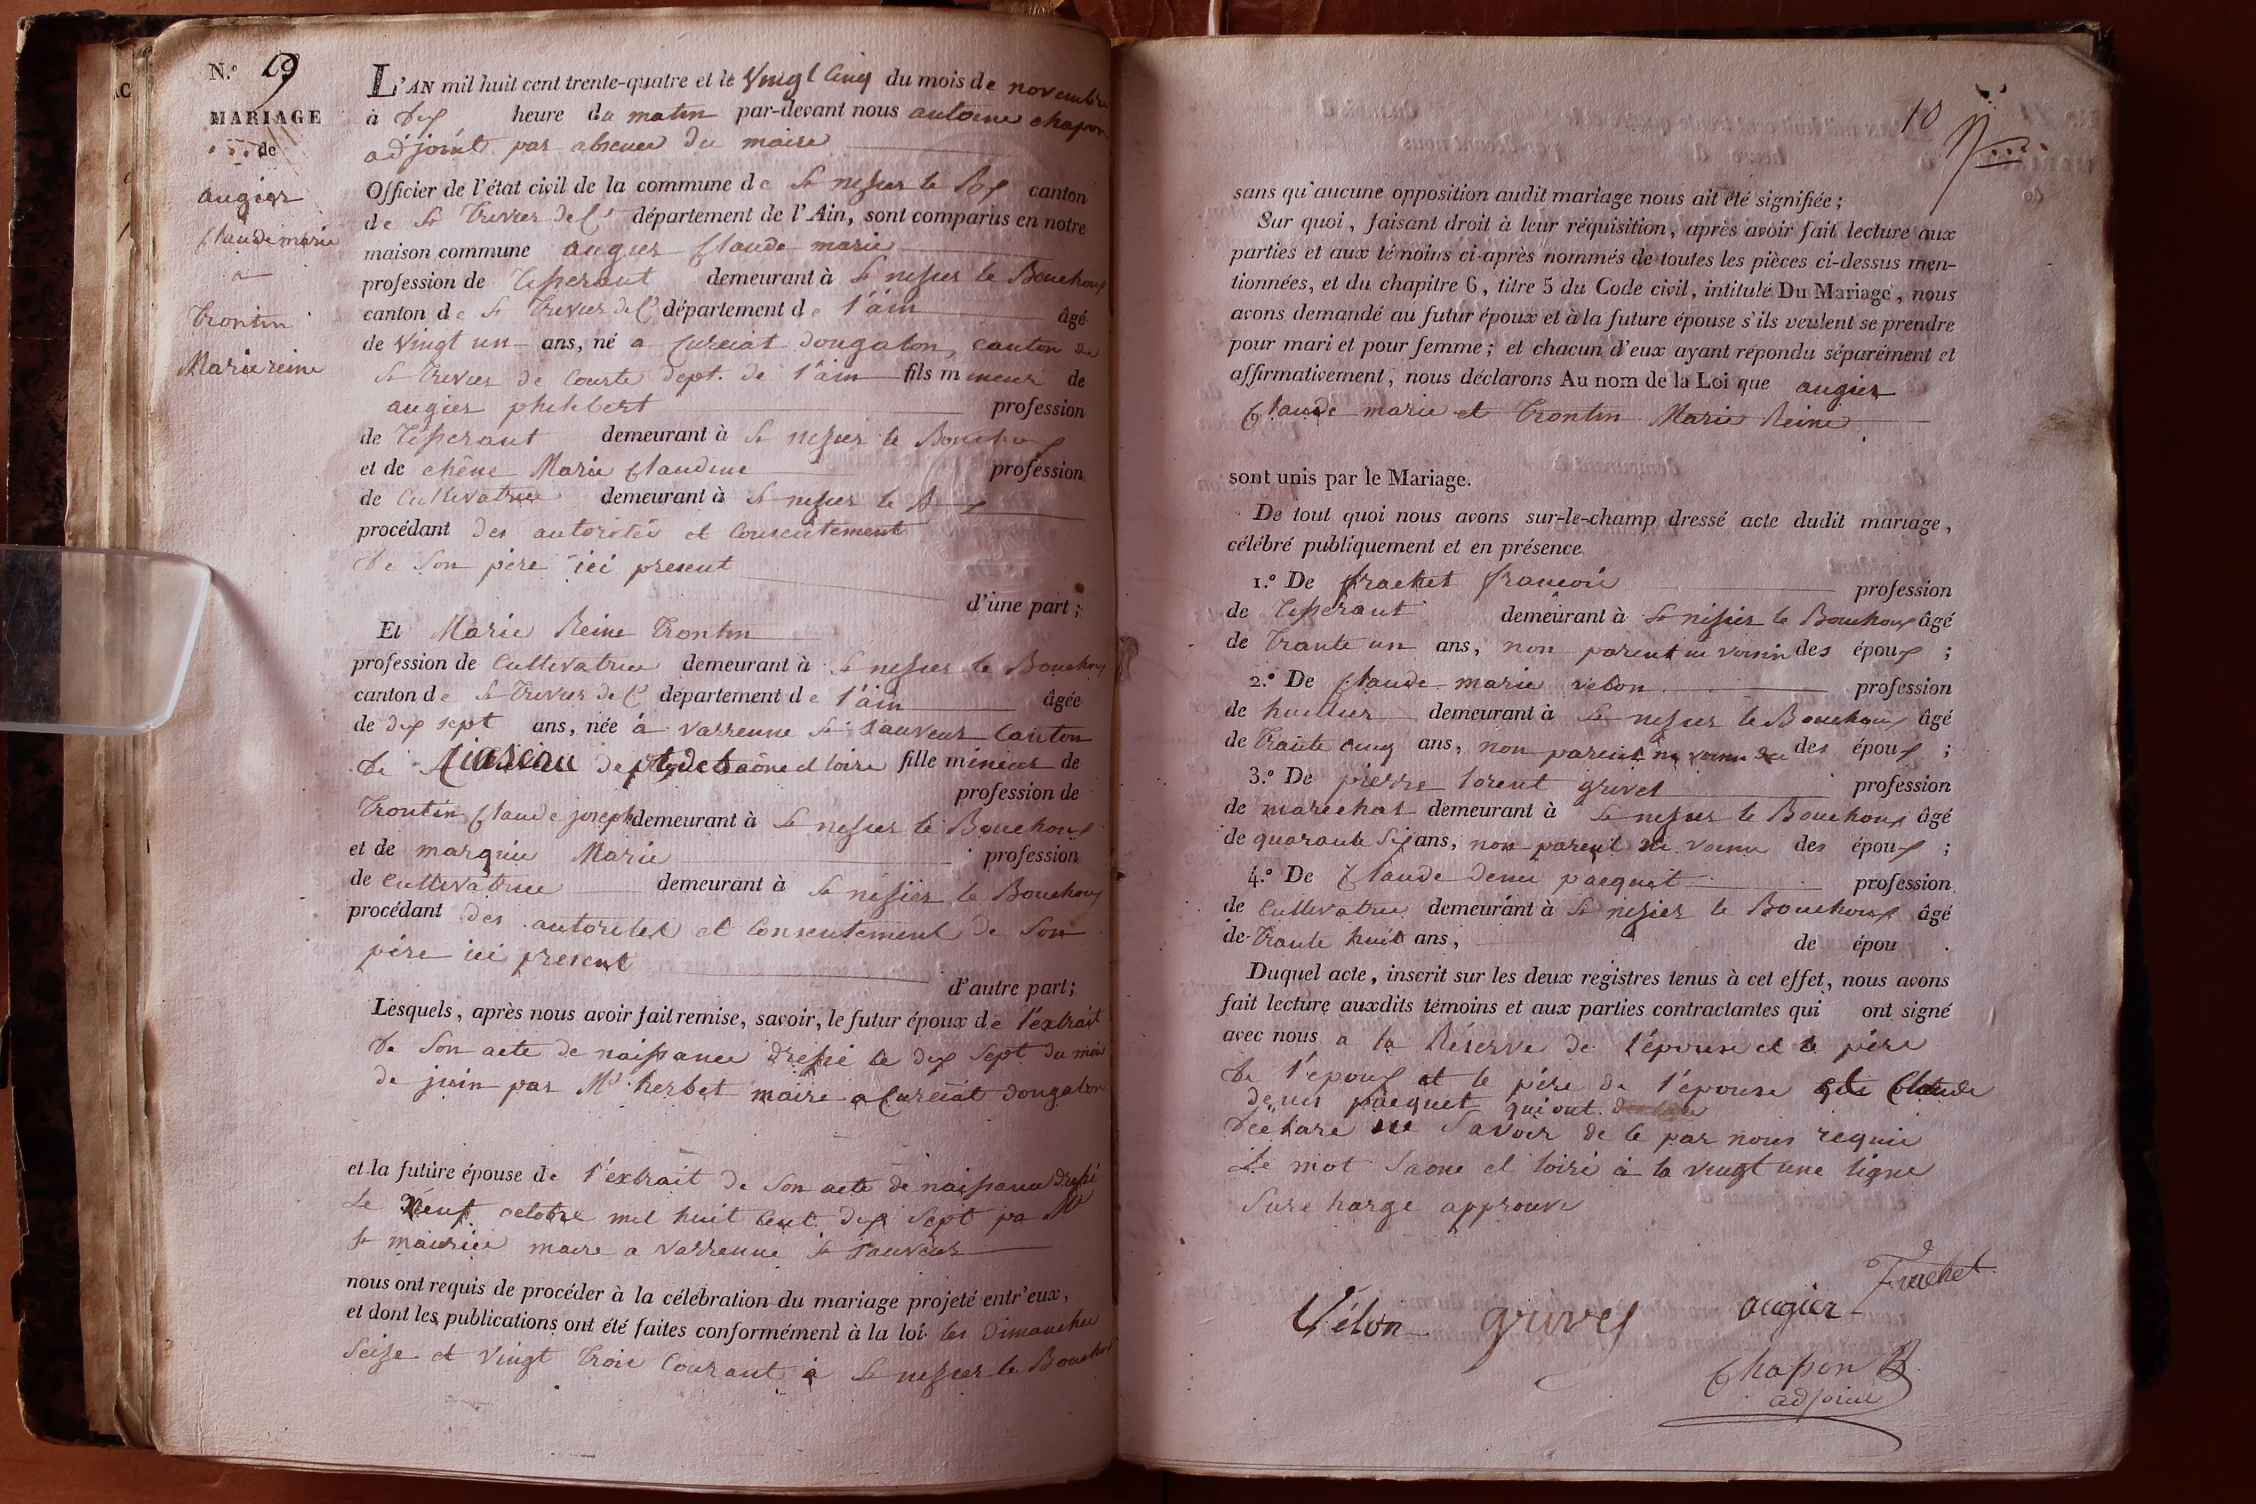 N.° 19
MARIAGE
de
augier
Claude marie
a
trontin
Marie reine
L'AN mil huit cent trente-quatre et le vingt cinq du mois de novembre
à dix heure du matin par-devant nous antoine chapon
adjoint par absence du maire
Officier de l'état civil de la commune de St nisier le Bx canton
de St trivier de Cs département de l'Ain, sont comparus en notre
maison commune augier Claude marie
profession de tisserant demeurant à St nisier le Bouchoux
canton de St trivier de Cs département de l'ain âgé
de vingt un ans, né a Curciat dongalon, canton de
St trivier de Courte dept. de l'ain fils mineur de
augier philibert profession
de tisserant demeurant à St nisier le Bouchoux
et de chêne Marie Claudine profession
de Cultivatrice demeurant à St nisier le Bx
procédant des autorités et Consentement
de son père ici present
d'une part;
Et Marie Reine trontin
profession de Cultivatrice demeurant à St nisier le Bouchoux
canton de St trivier de Cs département de l'ain âgée
de dix sept ans, née à varrenne St sauveur Canton
de dept de Saône et loire fille mineur de
profession de
trontin Claude joseph demeurant à St nisier le Bouchoux
et de marquis Marie profession
de Cultivatrice demeurant à St nisier le Bouchoux
procédant des autorités et Consentement de son
père ici present
d'autre part;
Lesquels, après nous avoir fait remise, savoir, le futur époux de l'extrait
de son acte de naissance dressé le dix sept du mois
de juin par Mr herbet maire a Curciat dongalon
et la future épouse de l'extrait de son acte de naissance dressé
Le neuf octobre mil huit Cent dix sept pa Mr
St maurice maire a varrenne St sauveur
nous ont requis de procéder à la célébration du mariage projeté entr'eux,
et dont les publications ont été faites conformément à la loi les dimanches
seize et vingt trois Courant à St nisier le Bouchoux
10
sans qu'aucune opposition audit mariage nous ait été signifiée;
Sur quoi, faisant droit à leur réquisition, après avoir fait lecture aux
parties et aux témoins ci-après nommés de toutes les pièces ci-dessus men-
tionnées, et du chapitre 6, titre 5 du Code civil, intitulé Du Mariage, nous
avons demandé au futur époux et à la future épouse s'ils veulent se prendre
pour mari et pour femme; et chacun d'eux ayant répondu séparément et
affirmativement, nous déclarons Au nom de la Loi que augier
Claude marie et trontin Marie Reine
sont unis par le Mariage.
De tout quoi nous avons sur-le-champ dressé acte dudit mariage,
célébré publiquement et en présence
1.° De frachet francois profession
de tisserant demeurant à St nisier le Bouchoux âgé
de trante un ans, non parent ni voisin des époux;
2.° De Claude marie velon profession
de huissier demeurant à St nisier le Bouchoux âgé
de trante cinq ans, non parent ni voisin des époux;
3.° De pierre lorent grivel profession
de marechal demeurant à St nisier le Bouchoux âgé
de quarante six ans, non parent ni voisin des époux;
4.° De Claude denis pacquet profession
de Cultivatrice demeurant à St nisier le Bouchoux âgé
de trante huit ans, de épou .
Duquel acte, inscrit sur les deux registres tenus à cet effet, nous avons
fait lecture auxdits témoins et aux parties contractantes qui ont signé
avec nous a la Réserve de l'épouse et le père
de l'époux et le père de l'épouse et Claude
denis pacquet qui ont
declare ne savoir de ce par nous requis
Le mot saone et loire à la vingt une ligne
surcharge approuvé
Frachet
Vélon grivel augier
Chapon
adjoint